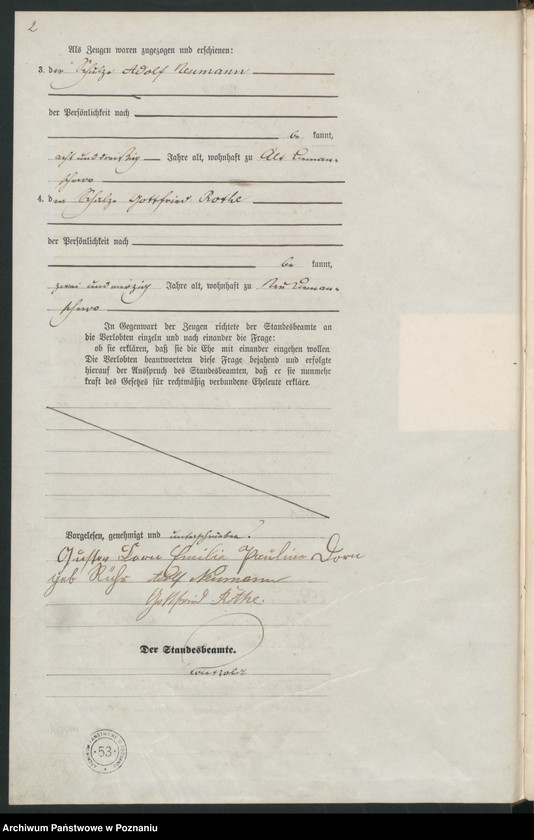 2
Als Zeugen waren zugezogen und erschienen:
3. der Schulze Adolf Neumann
der Persönlichkeit nach
be kannt,
acht und dreißig Jahre alt, wohnhaft zu Alt
4. der Schulze Gottfried Rothe
der Persönlichkeit nach
be kannt,
zwei und vierzig Jahre alt, wohnhaft zu Neu
In Gegenwart der Zeugen richtete der Standesbeamte an
die Verlobten einzeln und nach einander die Frage:
ob sie erklären, daß sie die Ehe mit einander eingehen wollen.
Die Verlobten beantworteten diese Frage bejahend und erfolgte
hierauf der Ausspruch des Standesbeamten, daß er sie nunmehr
kraft des Gesetzes für rechtmäßig verbundene Eheleute erkläre.
Vorgelesen, genehmigt und unterschrieben.
Gustav Dorn Emilie Pauline Dorn
geb Rühr Adolf Neumann
Gottfried Rothe.
Der Standesbeamte.
53
Archiwum Państwowe w Poznaniu